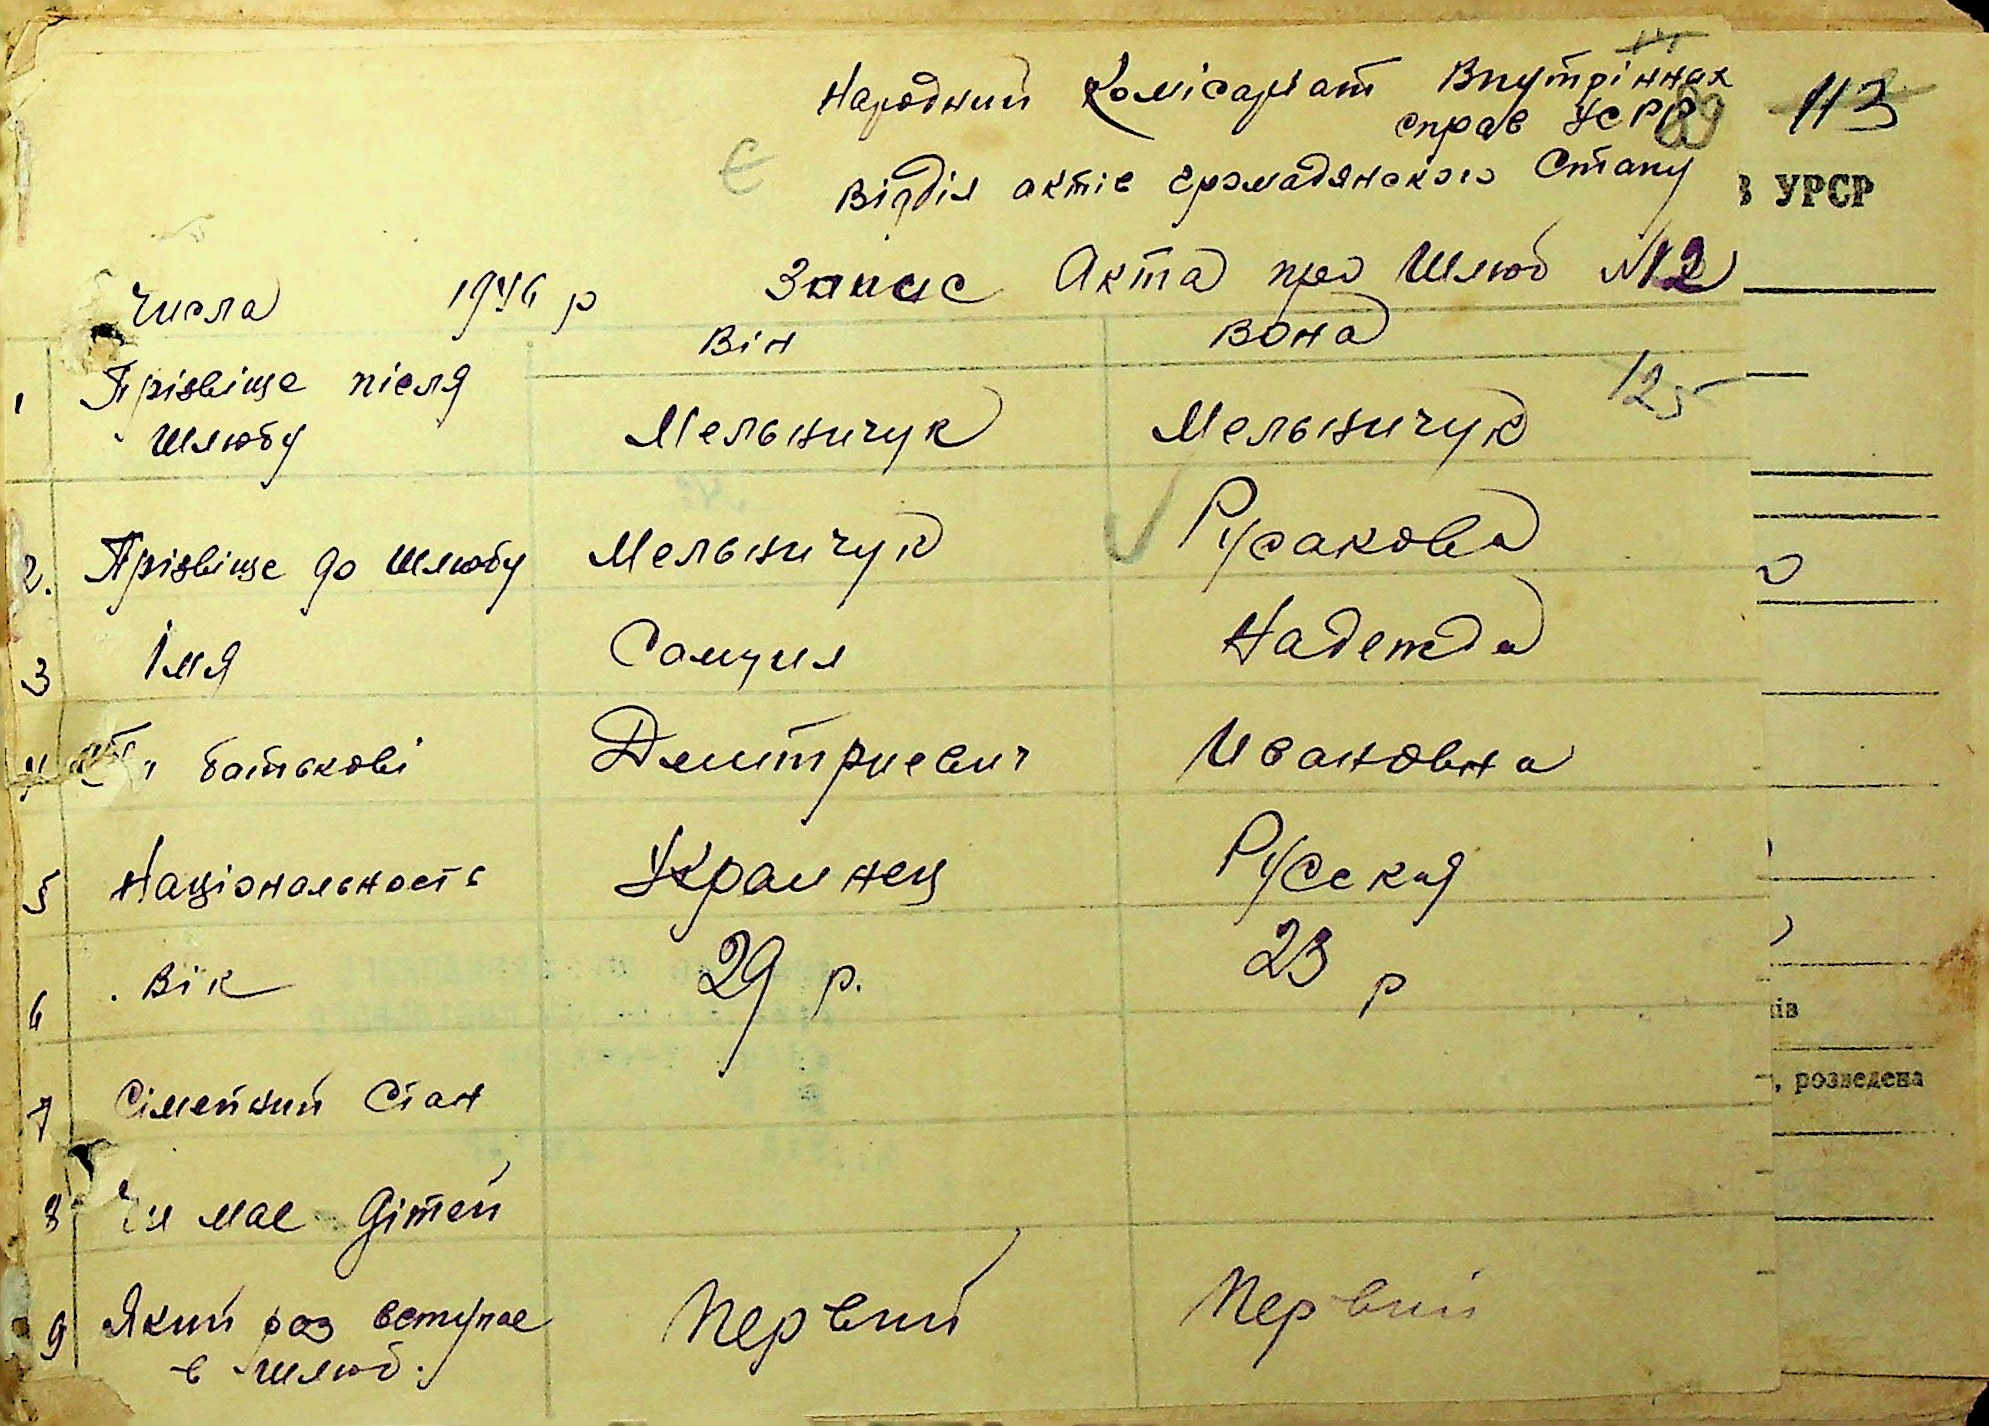 113
Народний Комісаріат Внутрінних
справ УСРР
89
Є
Відділ актів громадянского Стану
В УРСР
Числа 1946 р Запис Акта про Шлюб №12
Він Вона
125
1 Прізвіще після Шлюбу Мельничук Мельничук
2. Прізвіще до Шлюбу Мельничук Русакова
3 Імя Самуил Надежда
4 По батькові Дмитриевич Ивановна
5 Національность Украинец Русская
6 Вік 29 р. 23 р
ків
7 Сімейний Стан
, розведена
8 Чи має дітей
9 Який раз вступає Первий Первий
в шлюб.